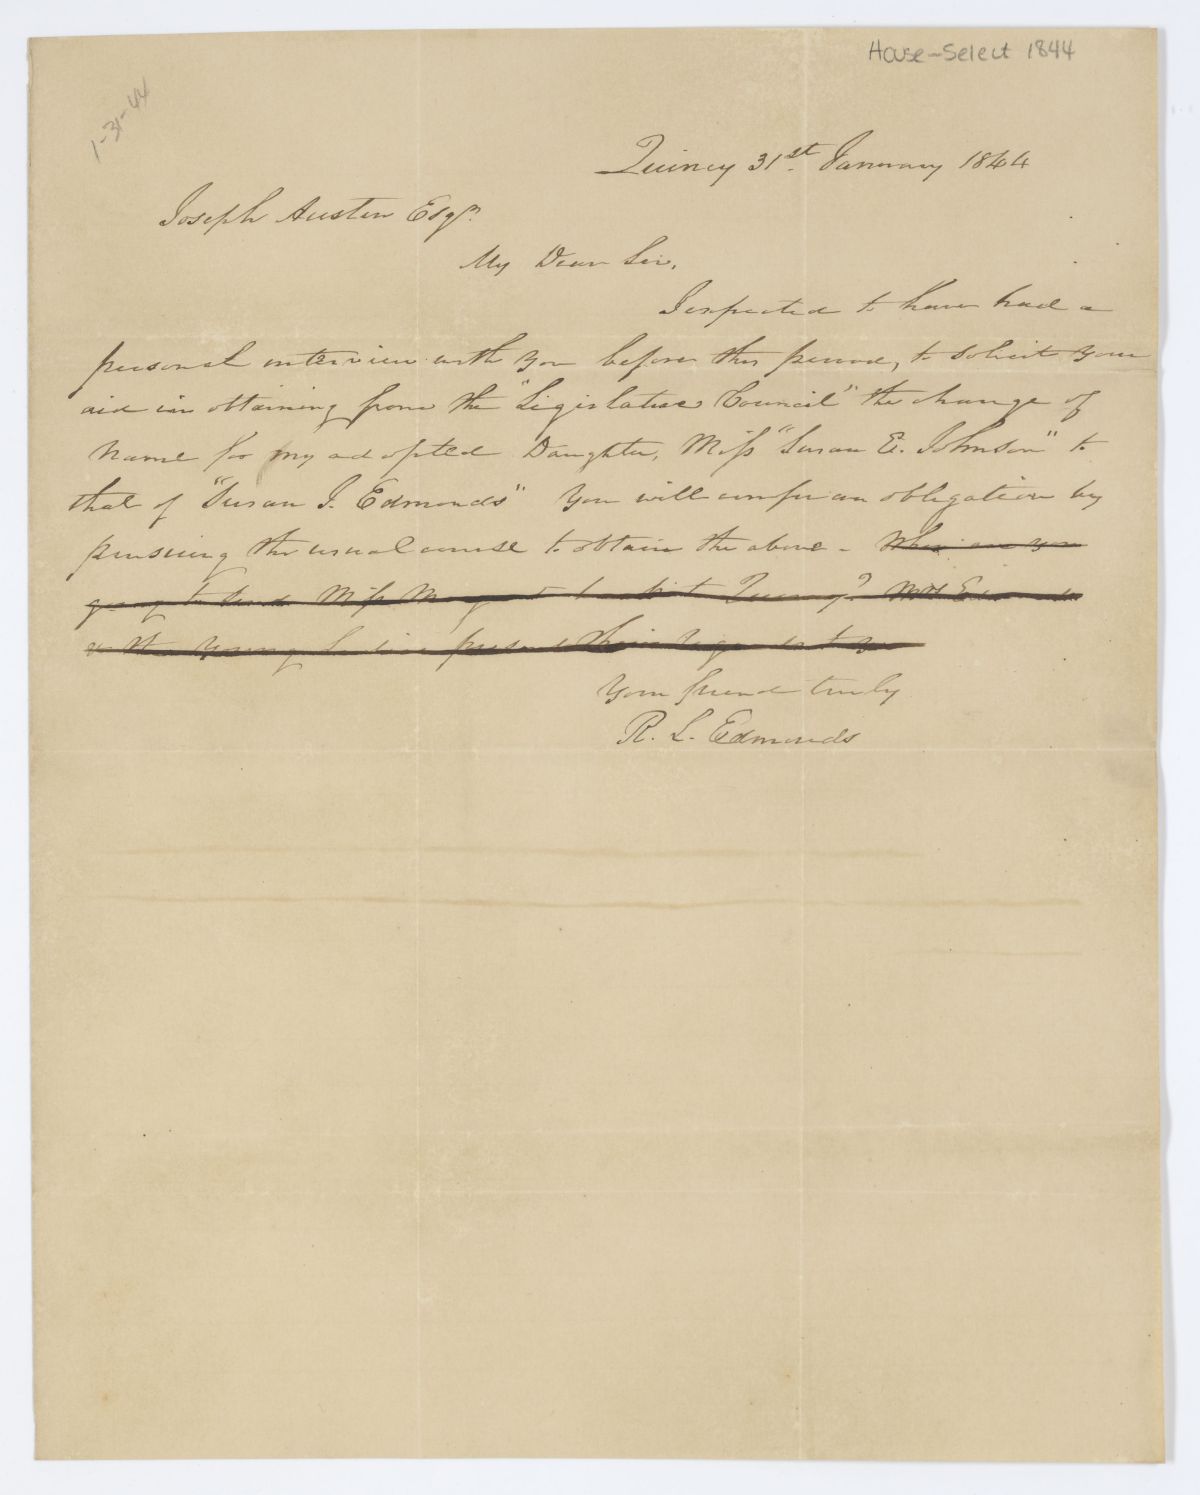 House-Select 1844
1-31-44
Quincy 31st. January 1844
Joseph Austin Esqr.
My Dear Sir,
I expected to have had a
personal interview with you before this period, to solicit your
aid in obtaining from the "Legislative Council" the change of
Name for my adopted Daughter, Miss "Susan E. Johnson" to
that of "Susan J. Edmonds" You will confer an obligation by
pursuing the usual course to obtain the above - When are you
going to send Miss to visit Quincy? Mrs
& the Young Ladies present their to you
Your friend truly
R. L. Edmonds